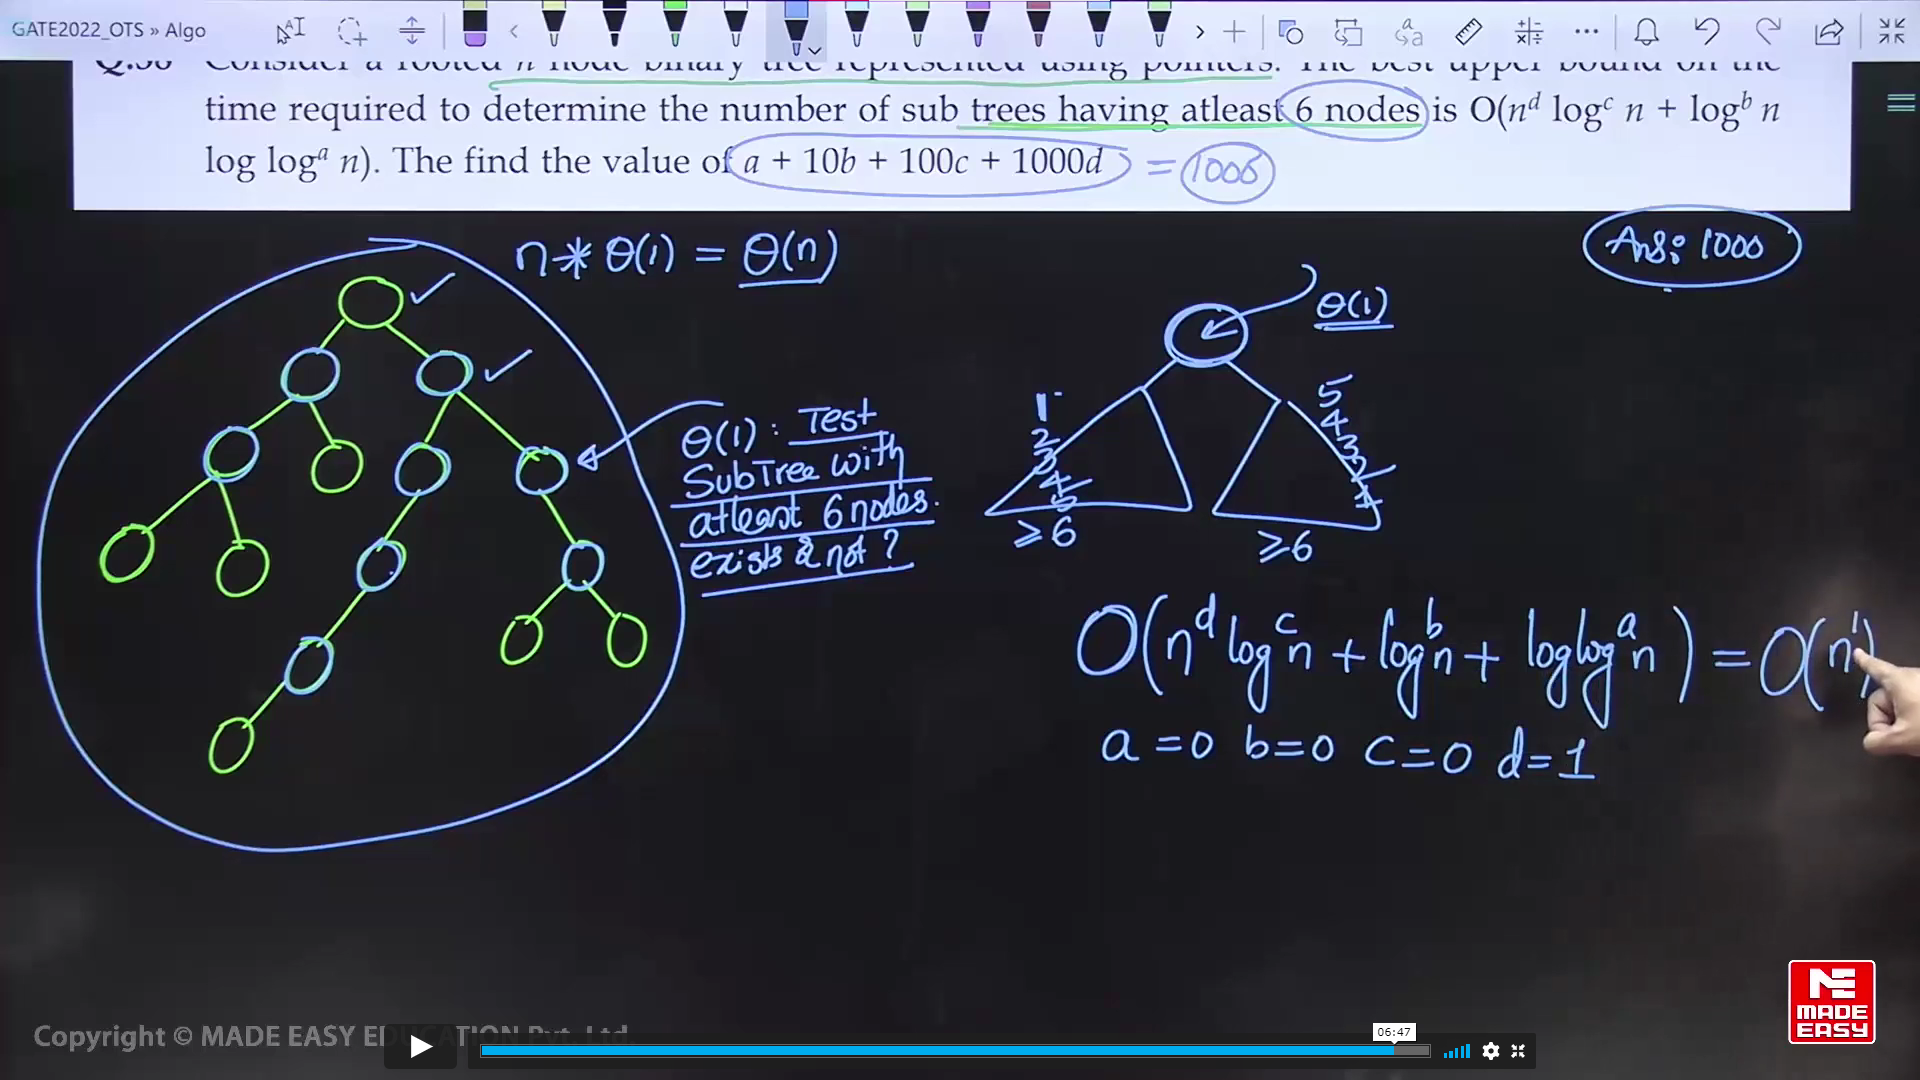 GATE2022_OTS » Algo
Consider a rooted n node binary tree represented using pointers. The best upper bound on the
time required to determine the number of sub trees having atleast 6 nodes is O(n^d log^c n + log^b n
log log^a n). The find the value of a + 10b + 100c + 1000d = 1000
Ans: 1000
n * θ(1) = θ(n)
θ(1)
θ(1) : Test
SubTree with
atleast 6 nodes.
exists & not ?
1
2
3
4
5
5
4
3
2
1
≥ 6
≥ 6
O(n^d log^c n + log^b n + log log^a n) = O(n^1)
a = 0 b = 0 c = 0 d = 1
MADE
EASY
Copyright © MADE EASY EDUCATION Pvt. Ltd.
06:47